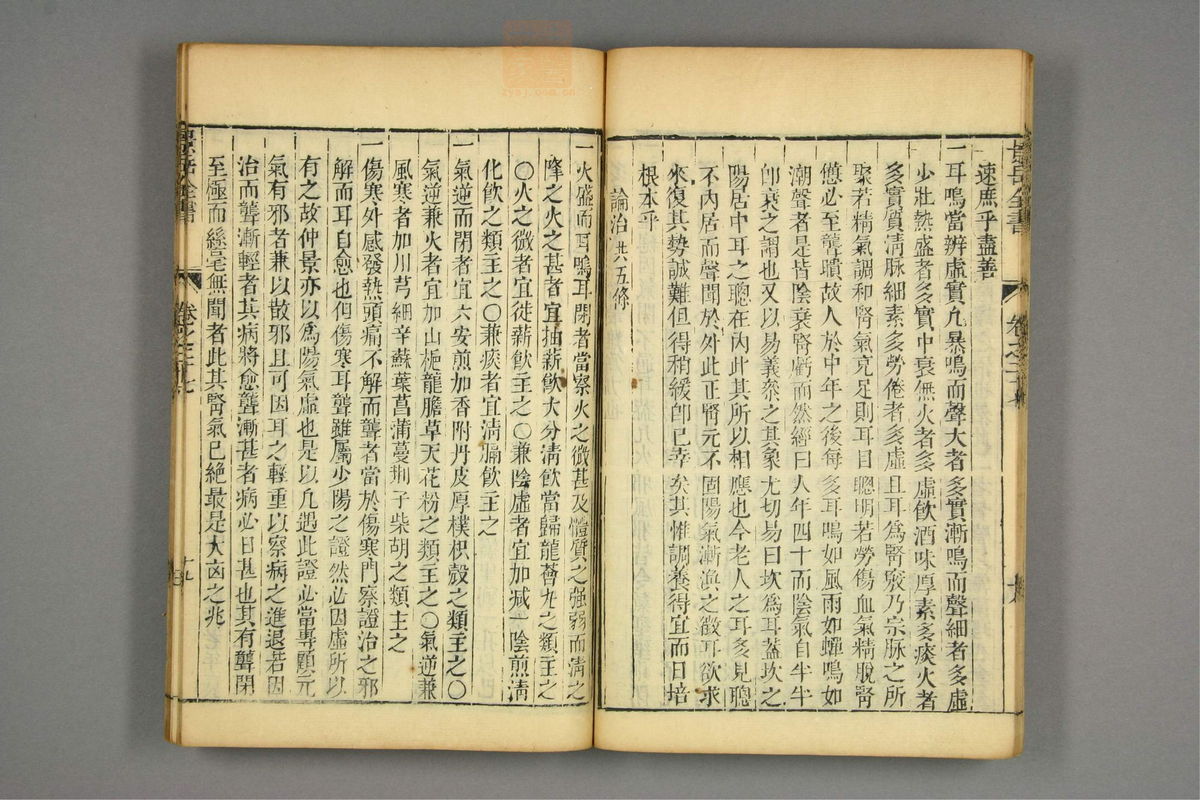 景岳全書
卷之二十七
速庶乎盡善
一耳鳴當辨虛實凡暴鳴而聲大者多實漸鳴而聲細者多虛
少壯熱盛者多實中衰無火者多虛飲酒味厚素多痰火者
多實質清脉細素多勞倦者多虛且耳爲腎竅乃宗脉之所
聚若精氣調和腎氣充足則耳目聰明若勞傷血氣精脫腎
憊必至聾聵故人於中年之後每多耳鳴如風雨如蟬鳴如
潮聲者是皆陰衰腎虧而然經曰人年四十而陰氣自半半
卽衰之謂也又以易義叅之其象尤切易曰坎爲耳蓋坎之
陽居中耳之聰在內此其所以相應也今老人之耳多見聰
不內居而聲聞於外此正腎元不固陽氣漸渙之徵耳欲求
來復其勢誠難但得稍緩卽已幸矣其惟調養得宜而日培
根本乎
論治共五條
一火盛而耳鳴耳閉者當察火之微甚及體質之强弱而清之
降之火之甚者宜抽薪飲大分清飲當歸龍薈丸之類主之
〇火之微者宜徙薪飲主之〇兼陰虛者宜加減一陰煎清
化飲之類主之〇兼痰者宜清膈飲主之
一氣逆而閉者宜六安煎加香附丹皮厚樸枳殼之類主之〇
氣逆兼火者宜加山梔龍膽草天花粉之類主之〇氣逆兼
風寒者加川芎細辛蘇葉菖蒲蔓荆子柴胡之類主之
一傷寒外感發熱頭痛不解而聾者當於傷寒門察證治之邪
解而耳自愈也但傷寒耳聾雖屬少陽之證然必因虛所以
有之故仲景亦以爲陽氣虛也是以凡遇此證必當專顧元
氣有邪者兼以散邪且可因耳之輕重以察病之進退若因
治而聾漸輕者其病將愈聾漸甚者病必日甚也其有聾閉
至極而絲毫無聞者此其腎氣已絶最是大凶之兆
景岳全書
卷之二十七
十九